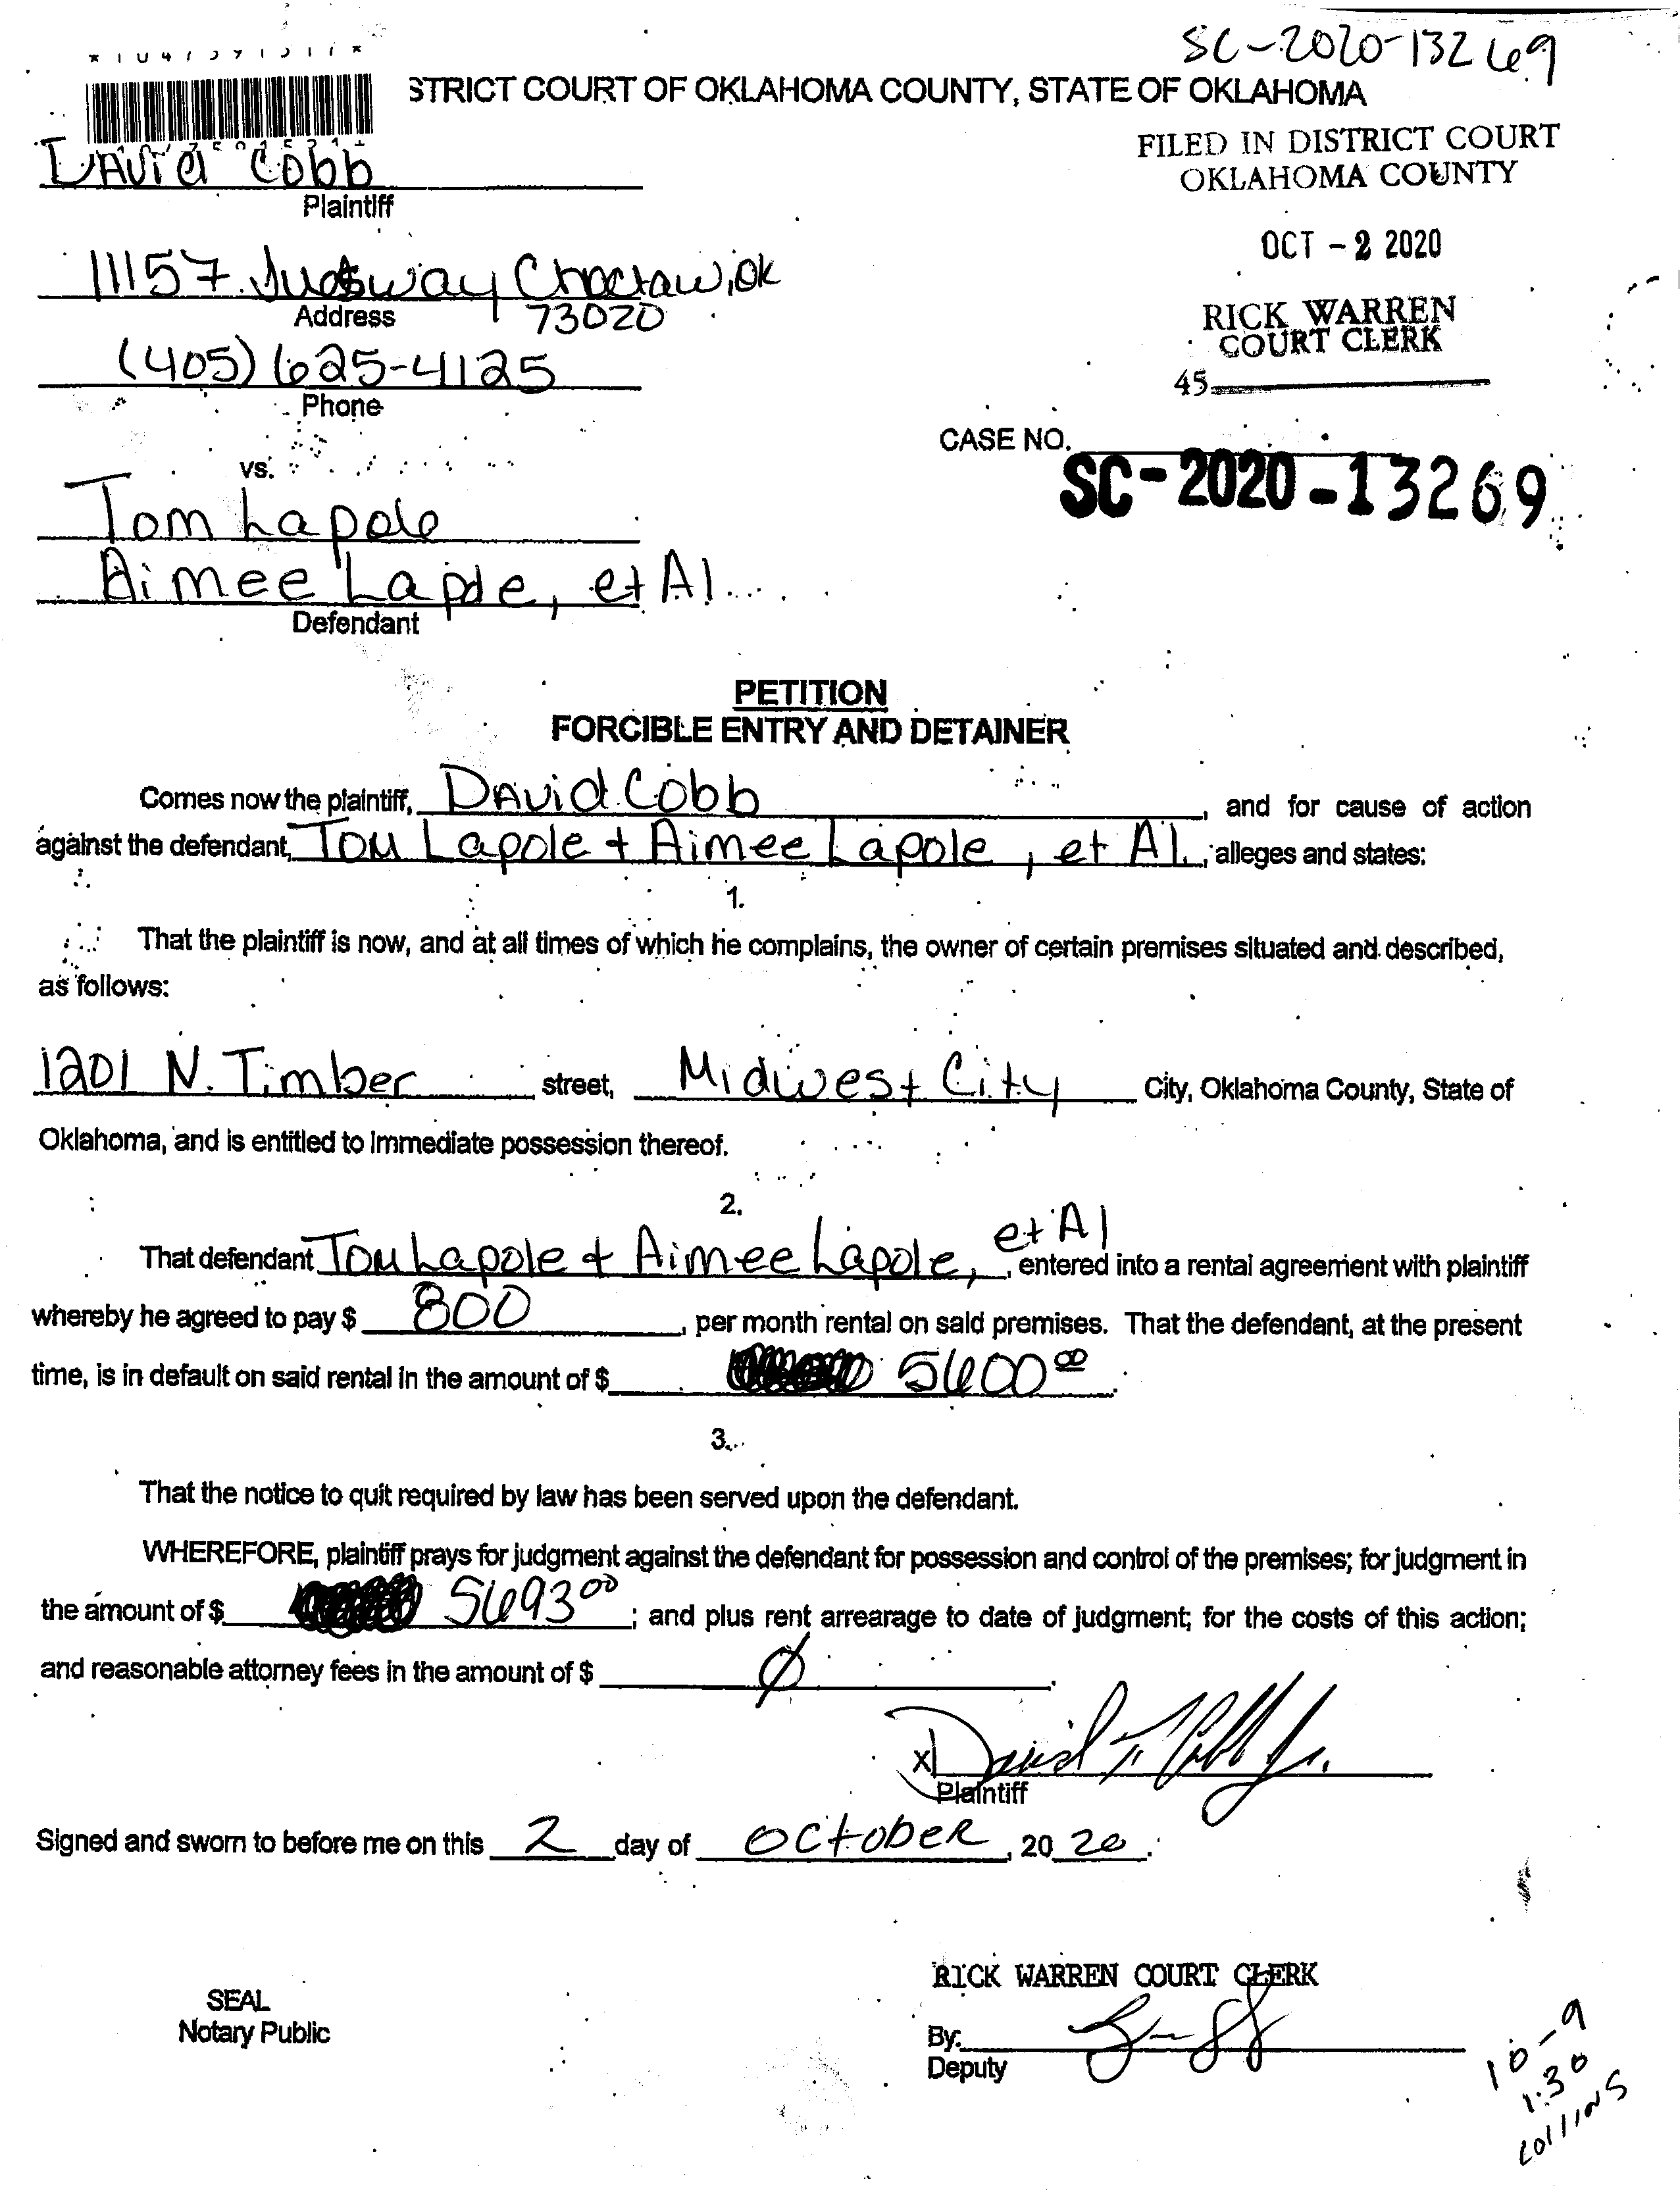 SC-2020-13269
STRICT COURT OF OKLAHOMA COUNTY, STATE OF OKLAHOMA
FILED IN DISTRICT COURT
OKLAHOMA COUNTY
OCT - 2 2020
RICK WARREN
COURT CLERK
45
David Cobb
Plaintiff
11157 Choctaw, OK
Address 73020
(405) 625-4125
Phone
CASE NO.
SC-2020-13269
vs.
Tom Lapole
Aimee Lapole, et Al
Defendant
PETITION
FORCIBLE ENTRY AND DETAINER
Comes now the plaintiff, David Cobb, and for cause of action
against the defendant, Tom Lapole + Aimee Lapole, et Al., alleges and states:
1.
That the plaintiff is now, and at all times of which he complains, the owner of certain premises situated and described,
as follows:
1201 N. Timber street, Midwest City City, Oklahoma County, State of
Oklahoma, and is entitled to immediate possession thereof.
2.
That defendant Tom Lapole + Aimee Lapole, et Al, entered into a rental agreement with plaintiff
whereby he agreed to pay $ 800, per month rental on said premises. That the defendant, at the present
time, is in default on said rental in the amount of $ 5600 00.
3.
That the notice to quit required by law has been served upon the defendant.
WHEREFORE, plaintiff prays for judgment against the defendant for possession and control of the premises; for judgment in
the amount of $ 5693 00; and plus rent arrearage to date of judgment; for the costs of this action;
and reasonable attorney fees in the amount of $ Ø.
X David T. Cobb Jr.
Plaintiff
Signed and sworn to before me on this 2 day of October, 20 20.
RICK WARREN COURT CLERK
SEAL
Notary Public
By:
Deputy
10-9
1:30
Collins